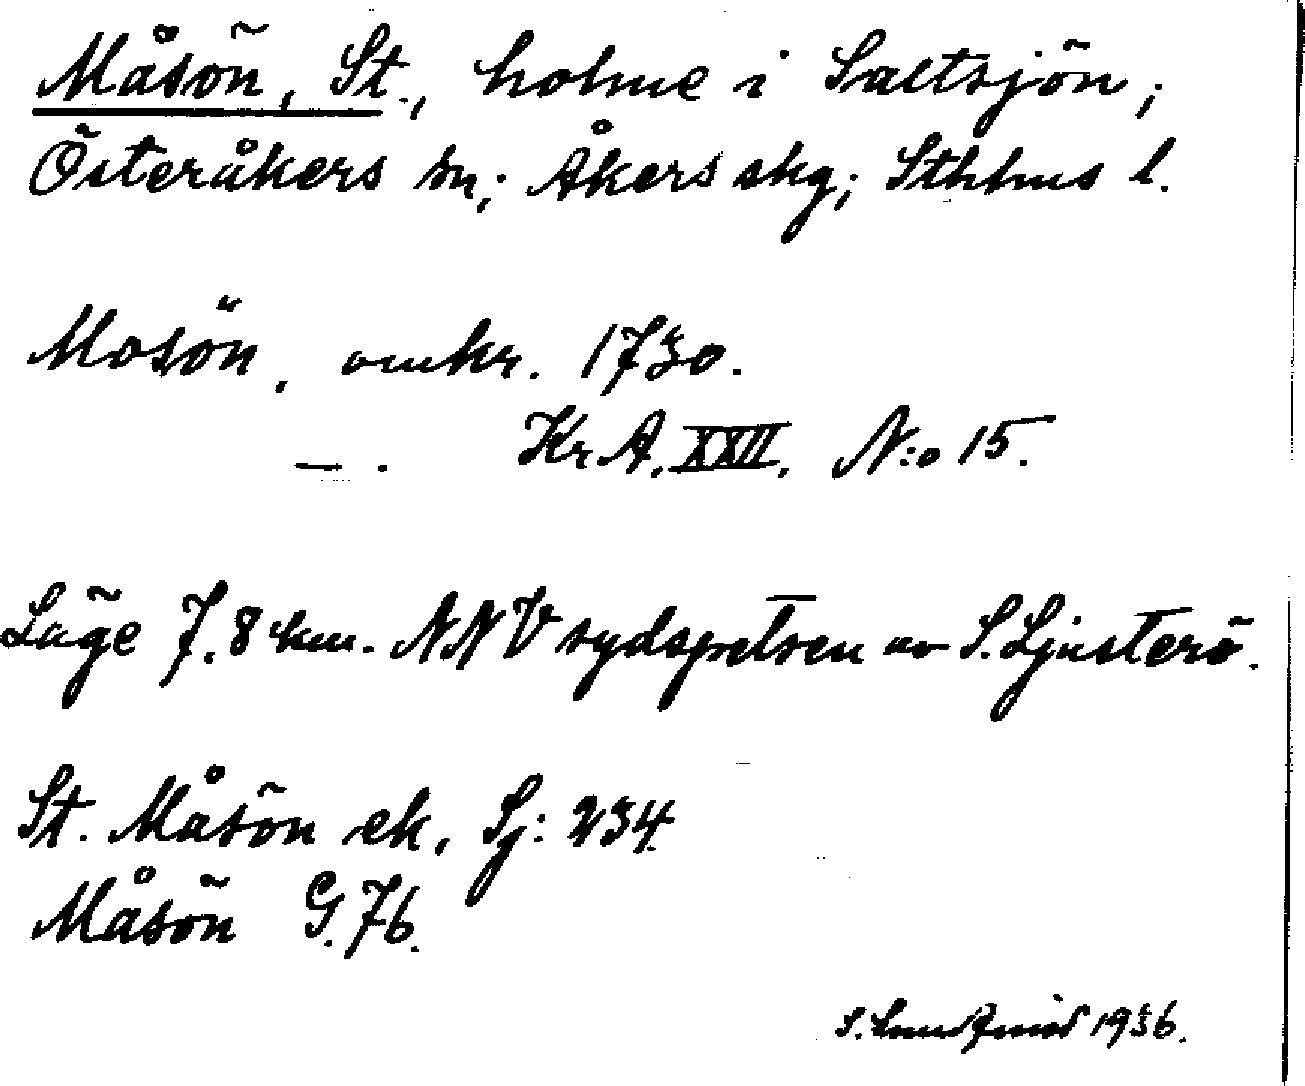 Måsön, St., holme i Saltsjön;
Österåkers sn; Åkers skg; Sthlms l.
Mosön, omkr. 1730.
— . Kr.A. XXII. N:o 15.
Läge 7.8 km. NNV sydspetsen av S. Ljusterö.
St. Måsön ek, Sj: 234
Måsön G. 76.
S. 1936.